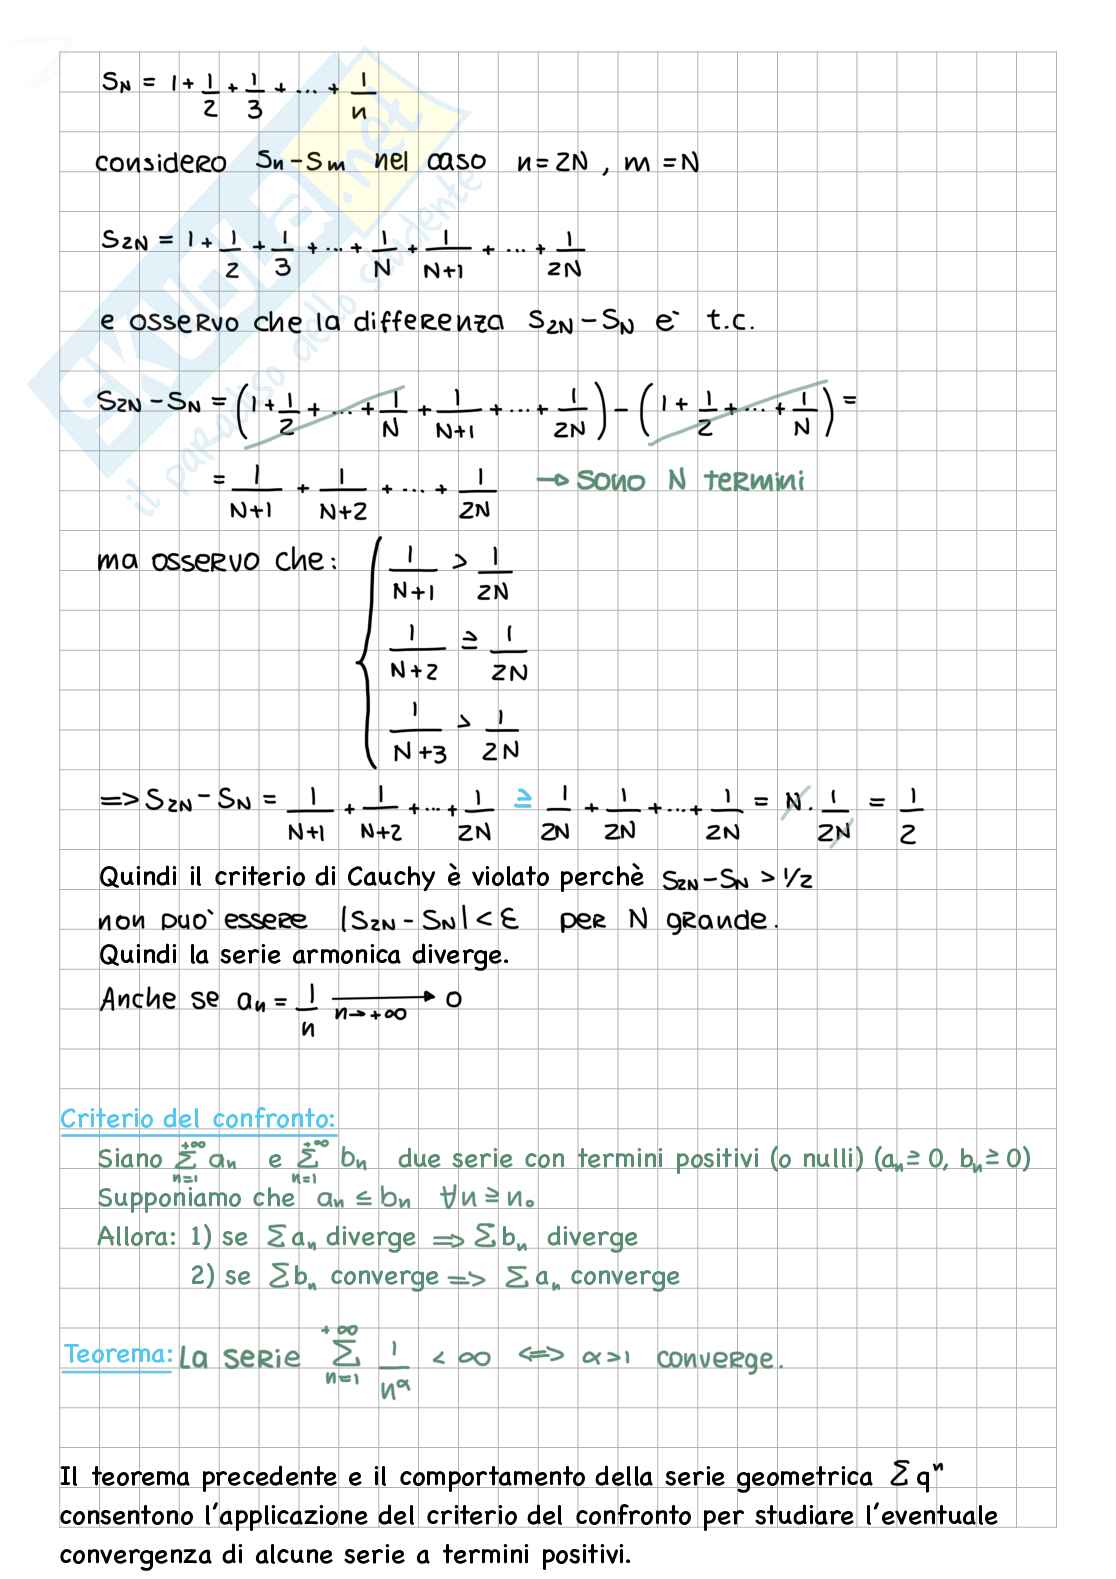 S_N = 1 + 1/2 + 1/3 + ... + 1/n
considero S_n - S_m nel caso n = 2N , m = N
S_2N = 1 + 1/2 + 1/3 + ... + 1/N + 1/(N+1) + ... + 1/2N
e osservo che la differenza S_2N - S_N e` t.c.
S_2N - S_N = (1 + 1/2 + ... + 1/N + 1/(N+1) + ... + 1/2N) - (1 + 1/2 + ... + 1/N) =
= 1/(N+1) + 1/(N+2) + ... + 1/2N → sono N termini
ma osservo che: { 1/(N+1) > 1/2N
1/(N+2) ≥ 1/2N
1/(N+3) > 1/2N
=> S_2N - S_N = 1/(N+1) + 1/(N+2) + ... + 1/2N ≥ 1/2N + 1/2N + ... + 1/2N = N · 1/2N = 1/2
Quindi il criterio di Cauchy è violato perchè S_2N - S_N > 1/2
non puo` essere |S_2N - S_N| < ε per N grande.
Quindi la serie armonica diverge.
Anche se a_n = 1/n → 0 n→+∞
Criterio del confronto:
Siano Σ_{n=1}^{+∞} a_n e Σ_{n=1}^{+∞} b_n due serie con termini positivi (o nulli) (a_n ≥ 0, b_n ≥ 0)
Supponiamo che a_n ≤ b_n ∀n ≥ n_0
Allora: 1) se Σ a_n diverge => Σ b_n diverge
2) se Σ b_n converge => Σ a_n converge
Teorema: La serie Σ_{n=1}^{+∞} 1/n^α < ∞ <=> α>1 converge.
Il teorema precedente e il comportamento della serie geometrica Σ q^n
consentono l'applicazione del criterio del confronto per studiare l'eventuale
convergenza di alcune serie a termini positivi.
skuola.net
il paradiso dello studente